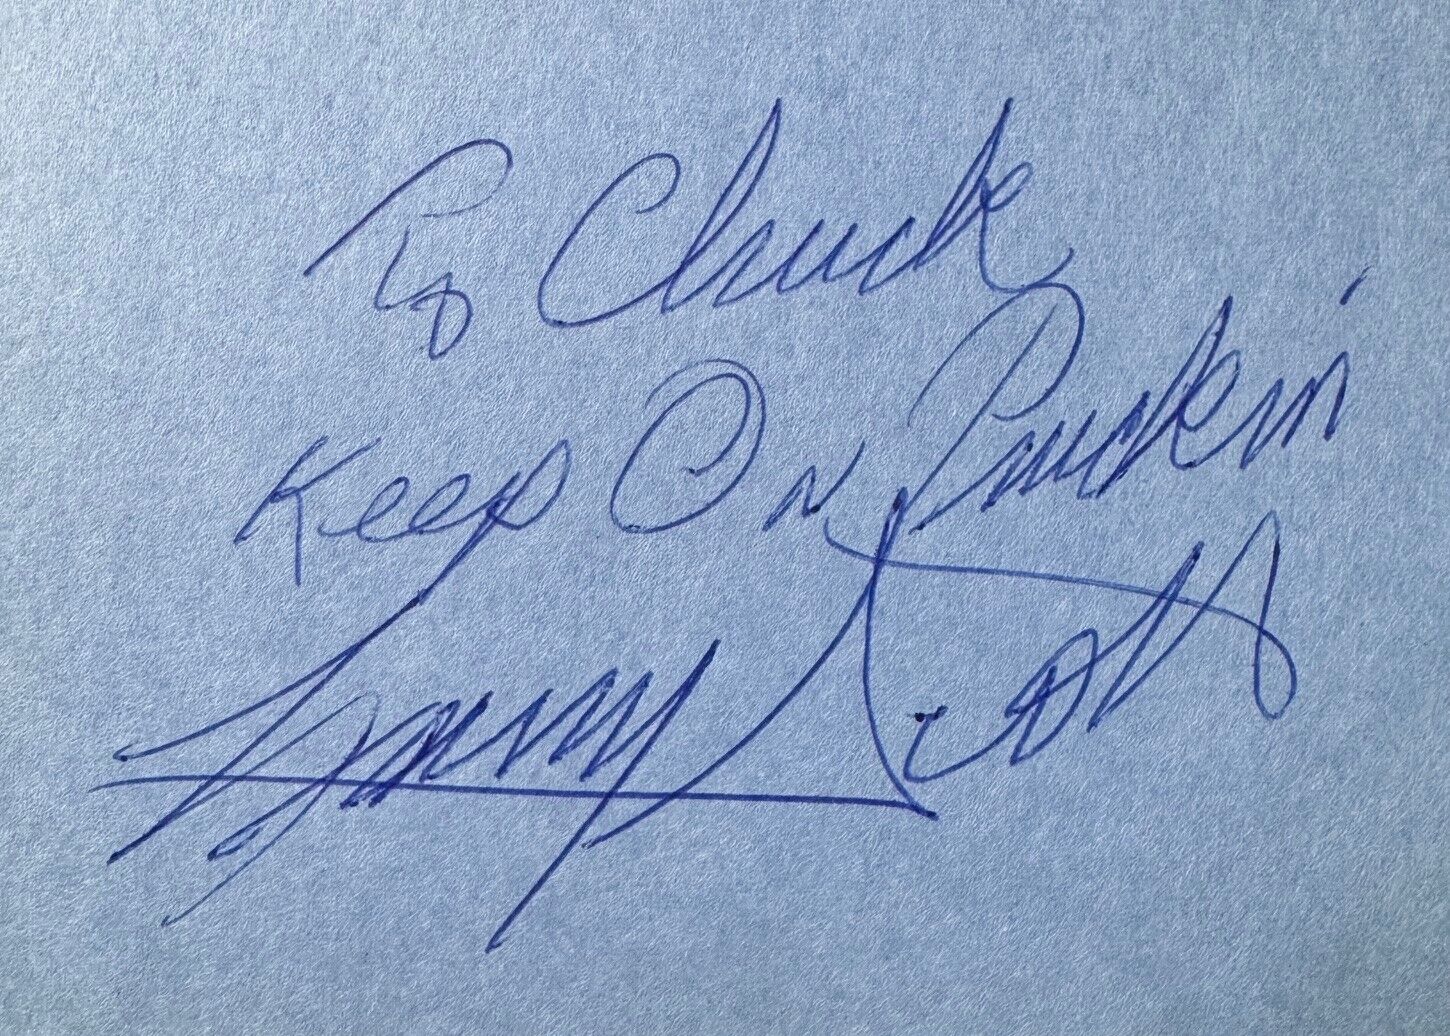 To Chuck
Keep On Puckin'
Larry Scott